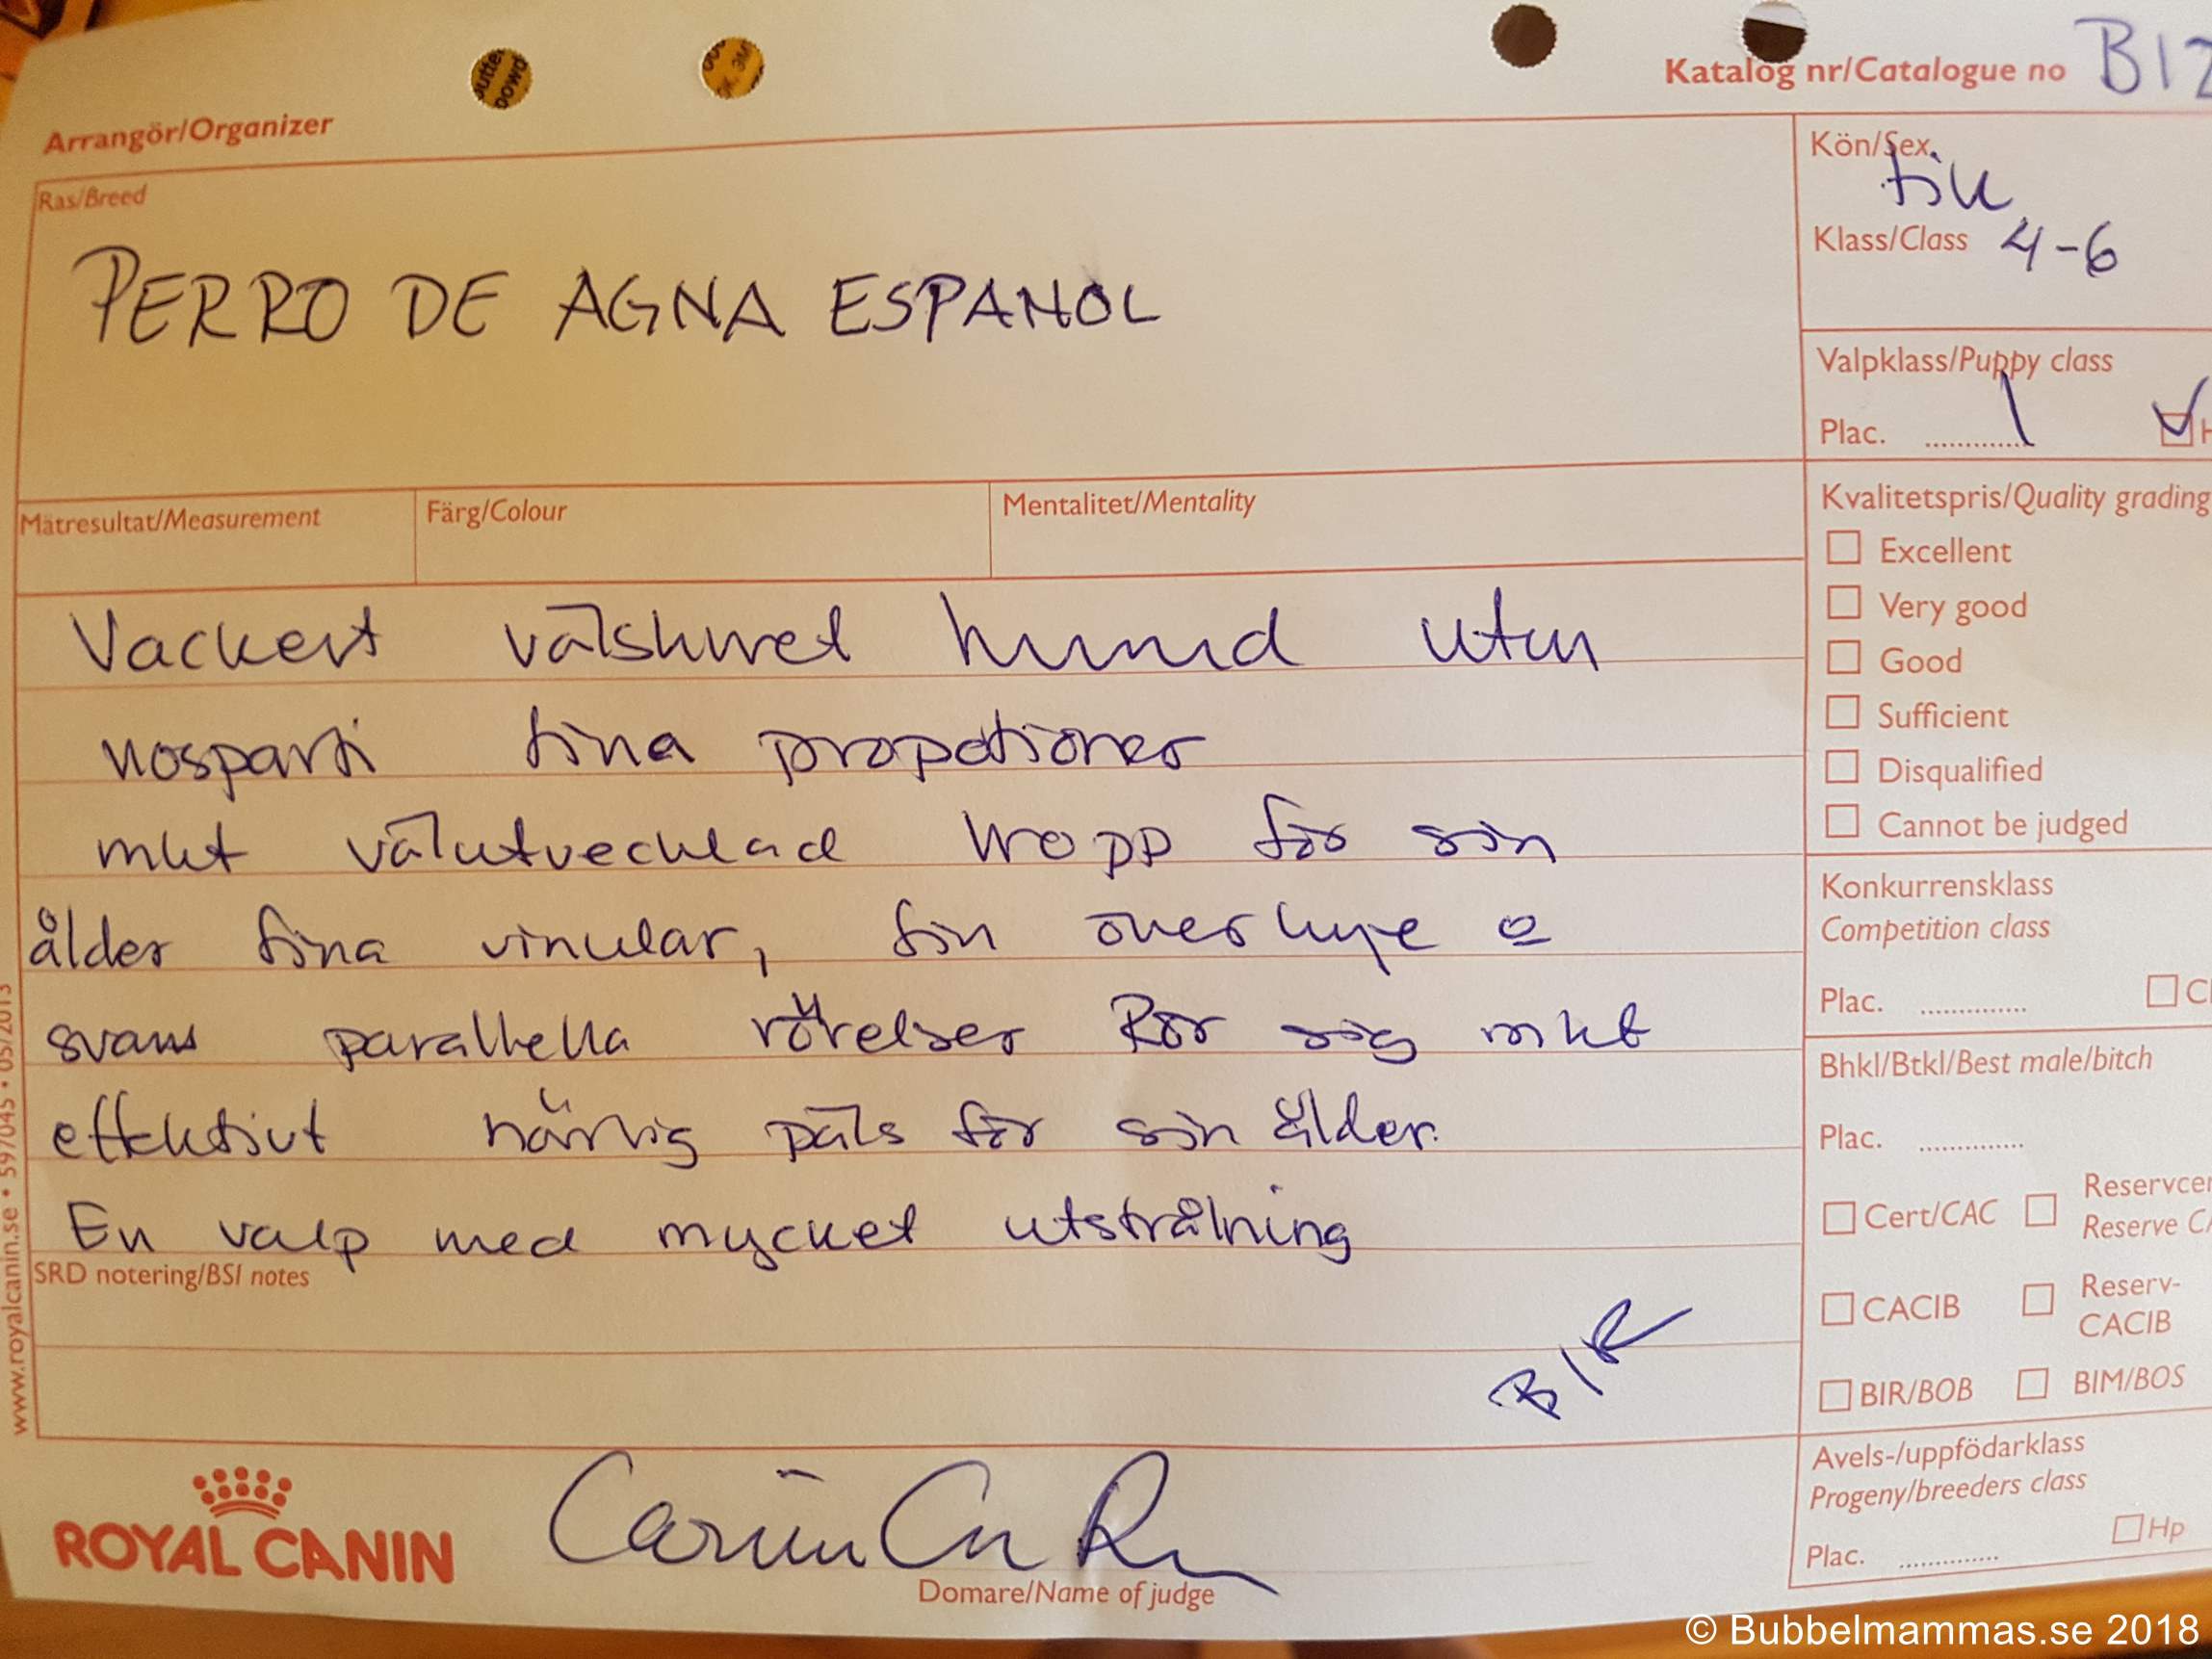 Katalog nr/Catalogue no B12
Arrangör/Organizer
Ras/Breed
PERRO DE AGNA ESPANOL
Kön/Sex tik
Klass/Class 4-6
Valpklass/Puppy class
Plac. 1
Mätresultat/Measurement Färg/Colour Mentalitet/Mentality
Vackert välskuret huvud utm
nosparti fina propotioner
mkt välutvecklad kropp för sin
ålder fina vinklar, fin överlinje o
svans parallella rörelser Rör sig mkt
effektivt härlig päls för sin ålder.
En valp med mycket utstrålning
SRD notering/BSI notes
BIR
Kvalitetspris/Quality grading
Excellent
Very good
Good
Sufficient
Disqualified
Cannot be judged
Konkurrensklass
Competition class
Plac.
Bhkl/Btkl/Best male/bitch
Plac.
Cert/CAC Reservcer
Reserve CA
CACIB Reserv-
CACIB
BIR/BOB BIM/BOS
Avels-/uppfödarklass
Progeny/breeders class
Hp
Plac.
www.royalcanin.se • 597045 • 05/2013
ROYAL CANIN
Domare/Name of judge
© Bubbelmammas.se 2018